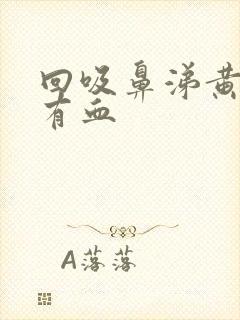 回吸鼻涕黄
有血
A落落